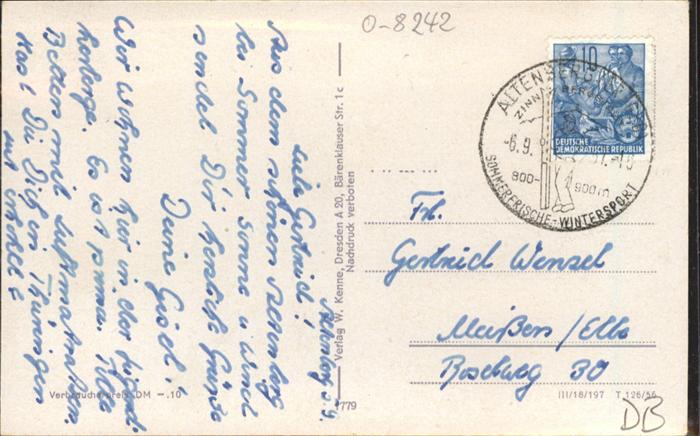 O-8242
Altenberg, 5.9.
Liebe Gertrud!
Aus dem schönen Altenberg
bei Sommer Sonne u. Wind
sendet Dir herzliche Grüße
Deine Gisel!
Wir wohnen hier in der Jugend-
herberge. Es ist prima. Tolle
Betten mit Luftmatratzen.
Hast Du Dich in Thüringen
gut erholt?
Verbraucherpreis DM —.10
Verlag W. Kenne, Dresden A 20, Bärenklauser Str. 1c
Nachdruck verboten
779
10
DEUTSCHE
DEMOKRATISCHE REPUBLIK
ALTENBERG
ZINN BERGBAU
-6.9.
800-900m
SOMMERFRISCHE-WINTERSPORT
Frl.
Gertrud Wenzel
Meißen/Elbe
Boselweg 30
III/18/197 T 126/56
DB